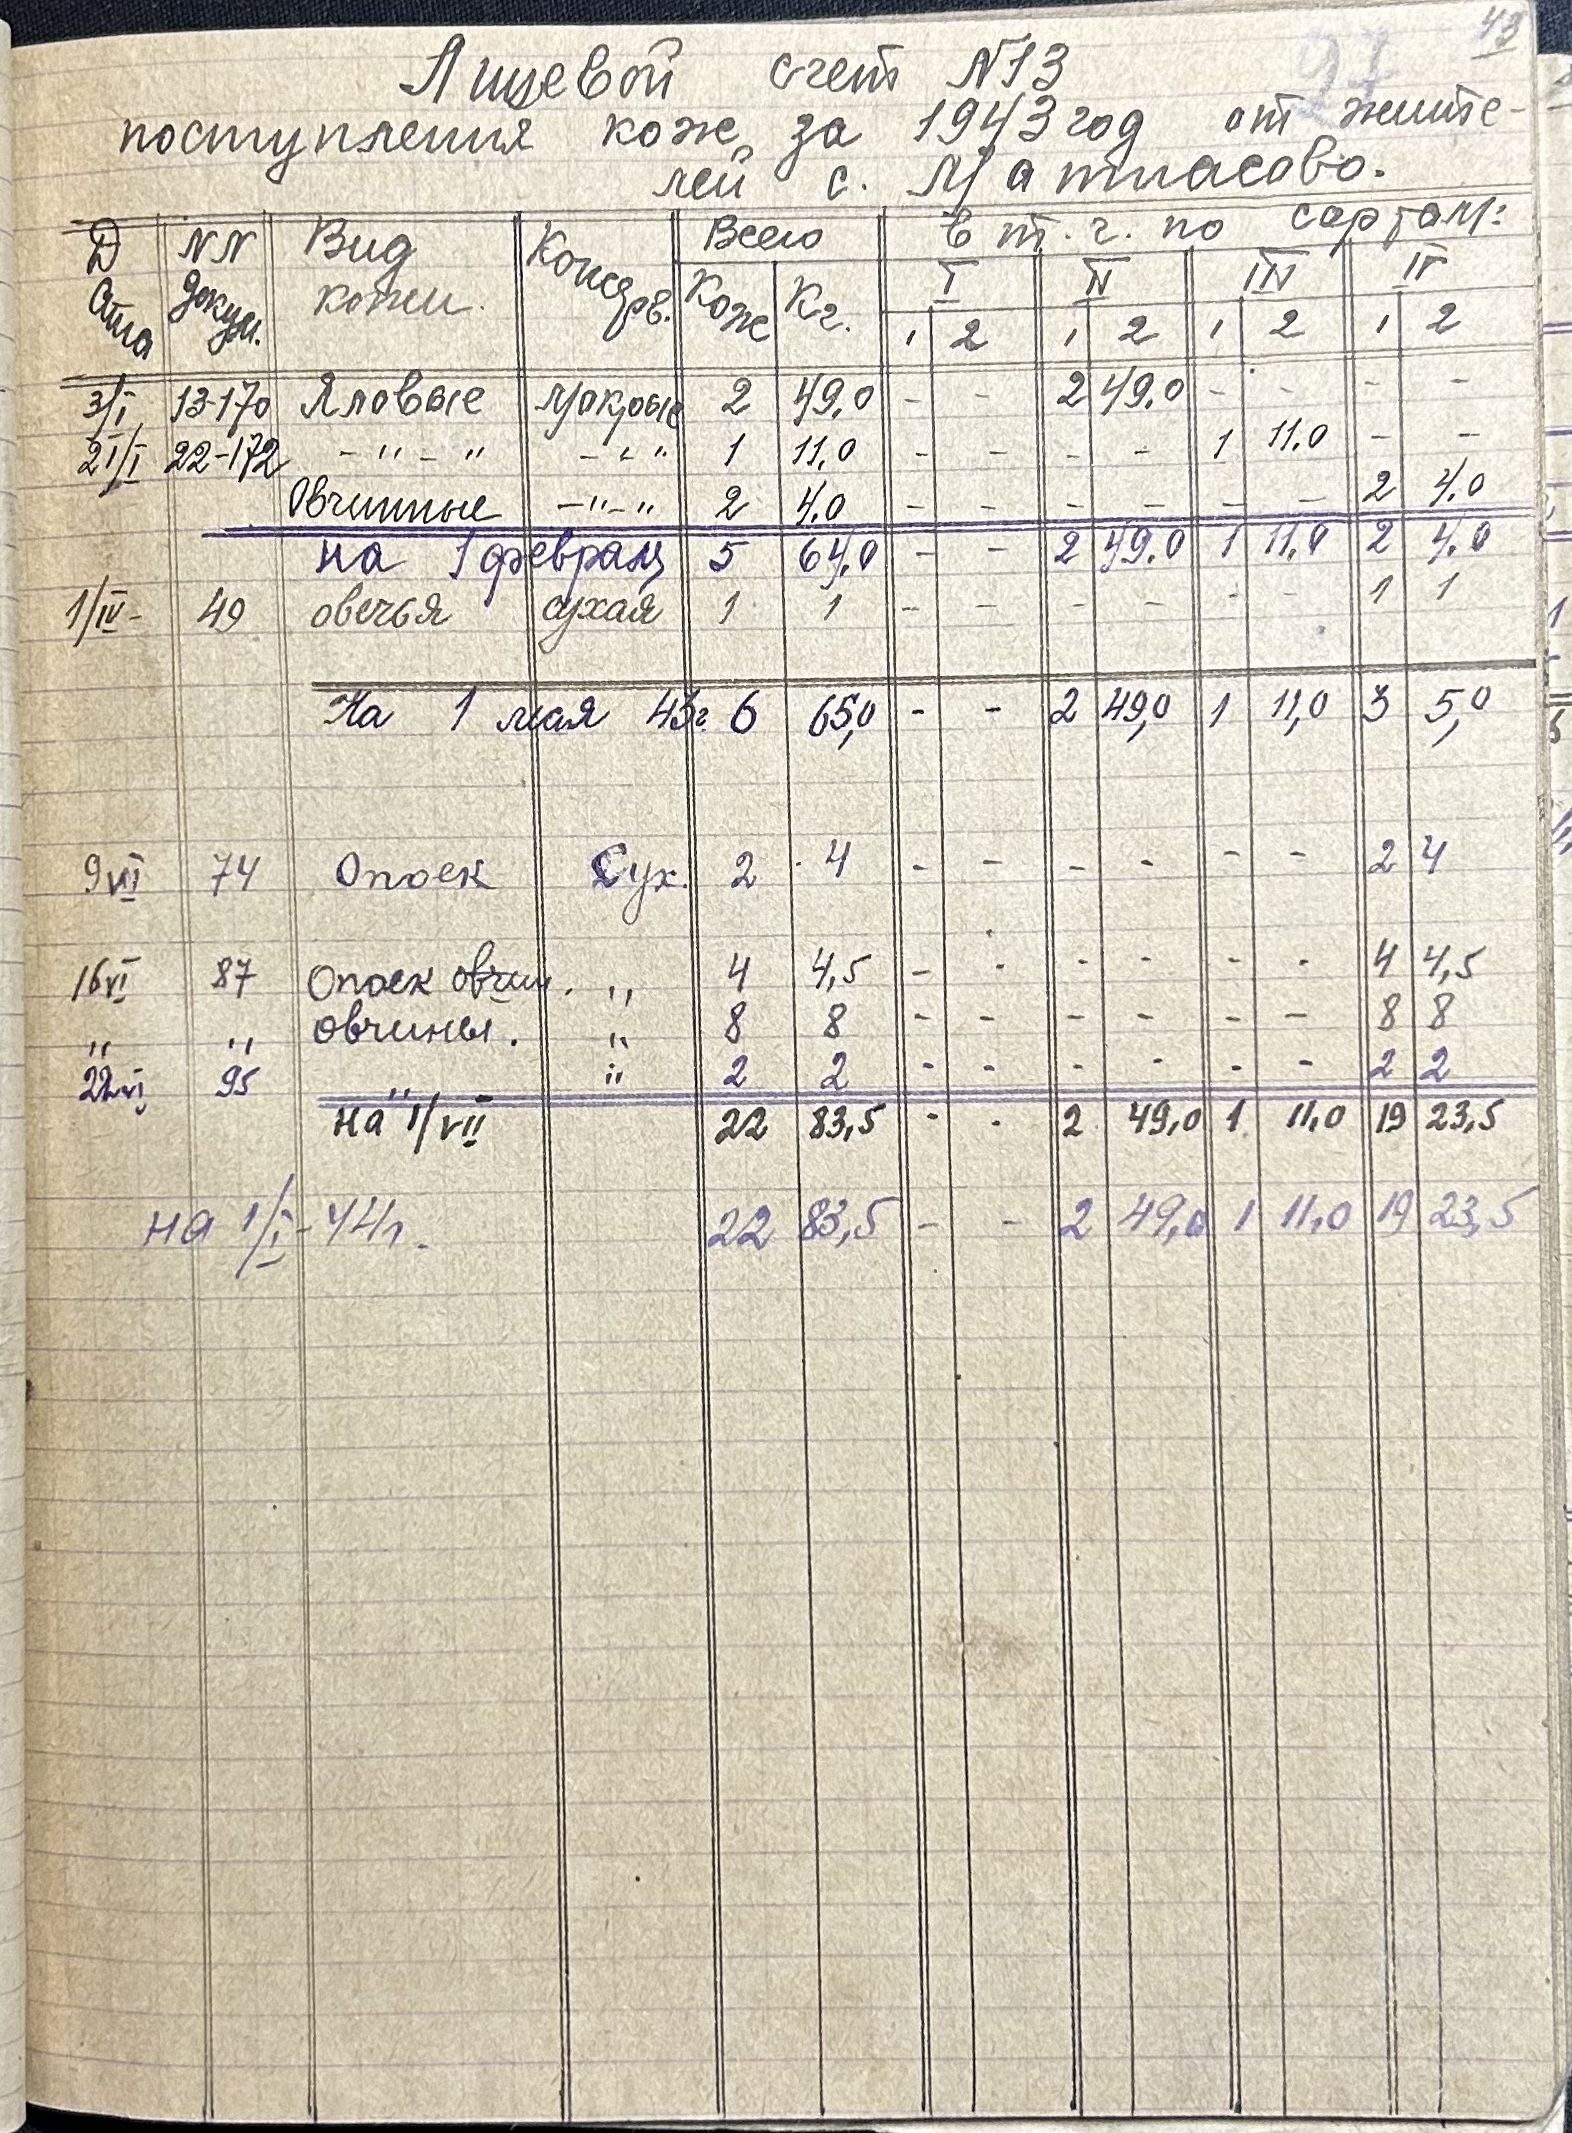 43
97
Лицевой счет N13
поступления кож за 1943 год от жите-
лей с. Матиасово.
Дата NN докум. Вид кожи. Консерв. Всего в т.ч. по сортам:
Кож Кг. I II III IV
1 2 1 2 1 2 1 2
3/I 13-170 Яловые мокрые 2 49,0 - - 2 49,0 - - - -
21/I 22-172 -"-" -"-" 1 11,0 - - - - 1 11,0 - -
Овчинные -"-" 2 4,0 - - - - - - 2 4,0
на 1 феврал 5 64,0 - - 2 49,0 1 11,0 2 4,0
1/IV- 49 овечья сухая 1 1 - - - - - - 1 1
На 1 мая 43г. 6 65,0 - - 2 49,0 1 11,0 3 5,0
9VI 74 Опоек Сух. 2 4 - - - - - - 2 4
16VI 87 Опоек овчин. " 4 4,5 - - - - - - 4 4,5
" " овчины. " 8 8 - - - - - - 8 8
22VI 95 " " 2 2 - - - - - - 2 2
на 1/VII 22 83,5 - - 2 49,0 1 11,0 19 23,5
на 1/I-44г. 22 83,5 - - 2 49,0 1 11,0 19 23,5